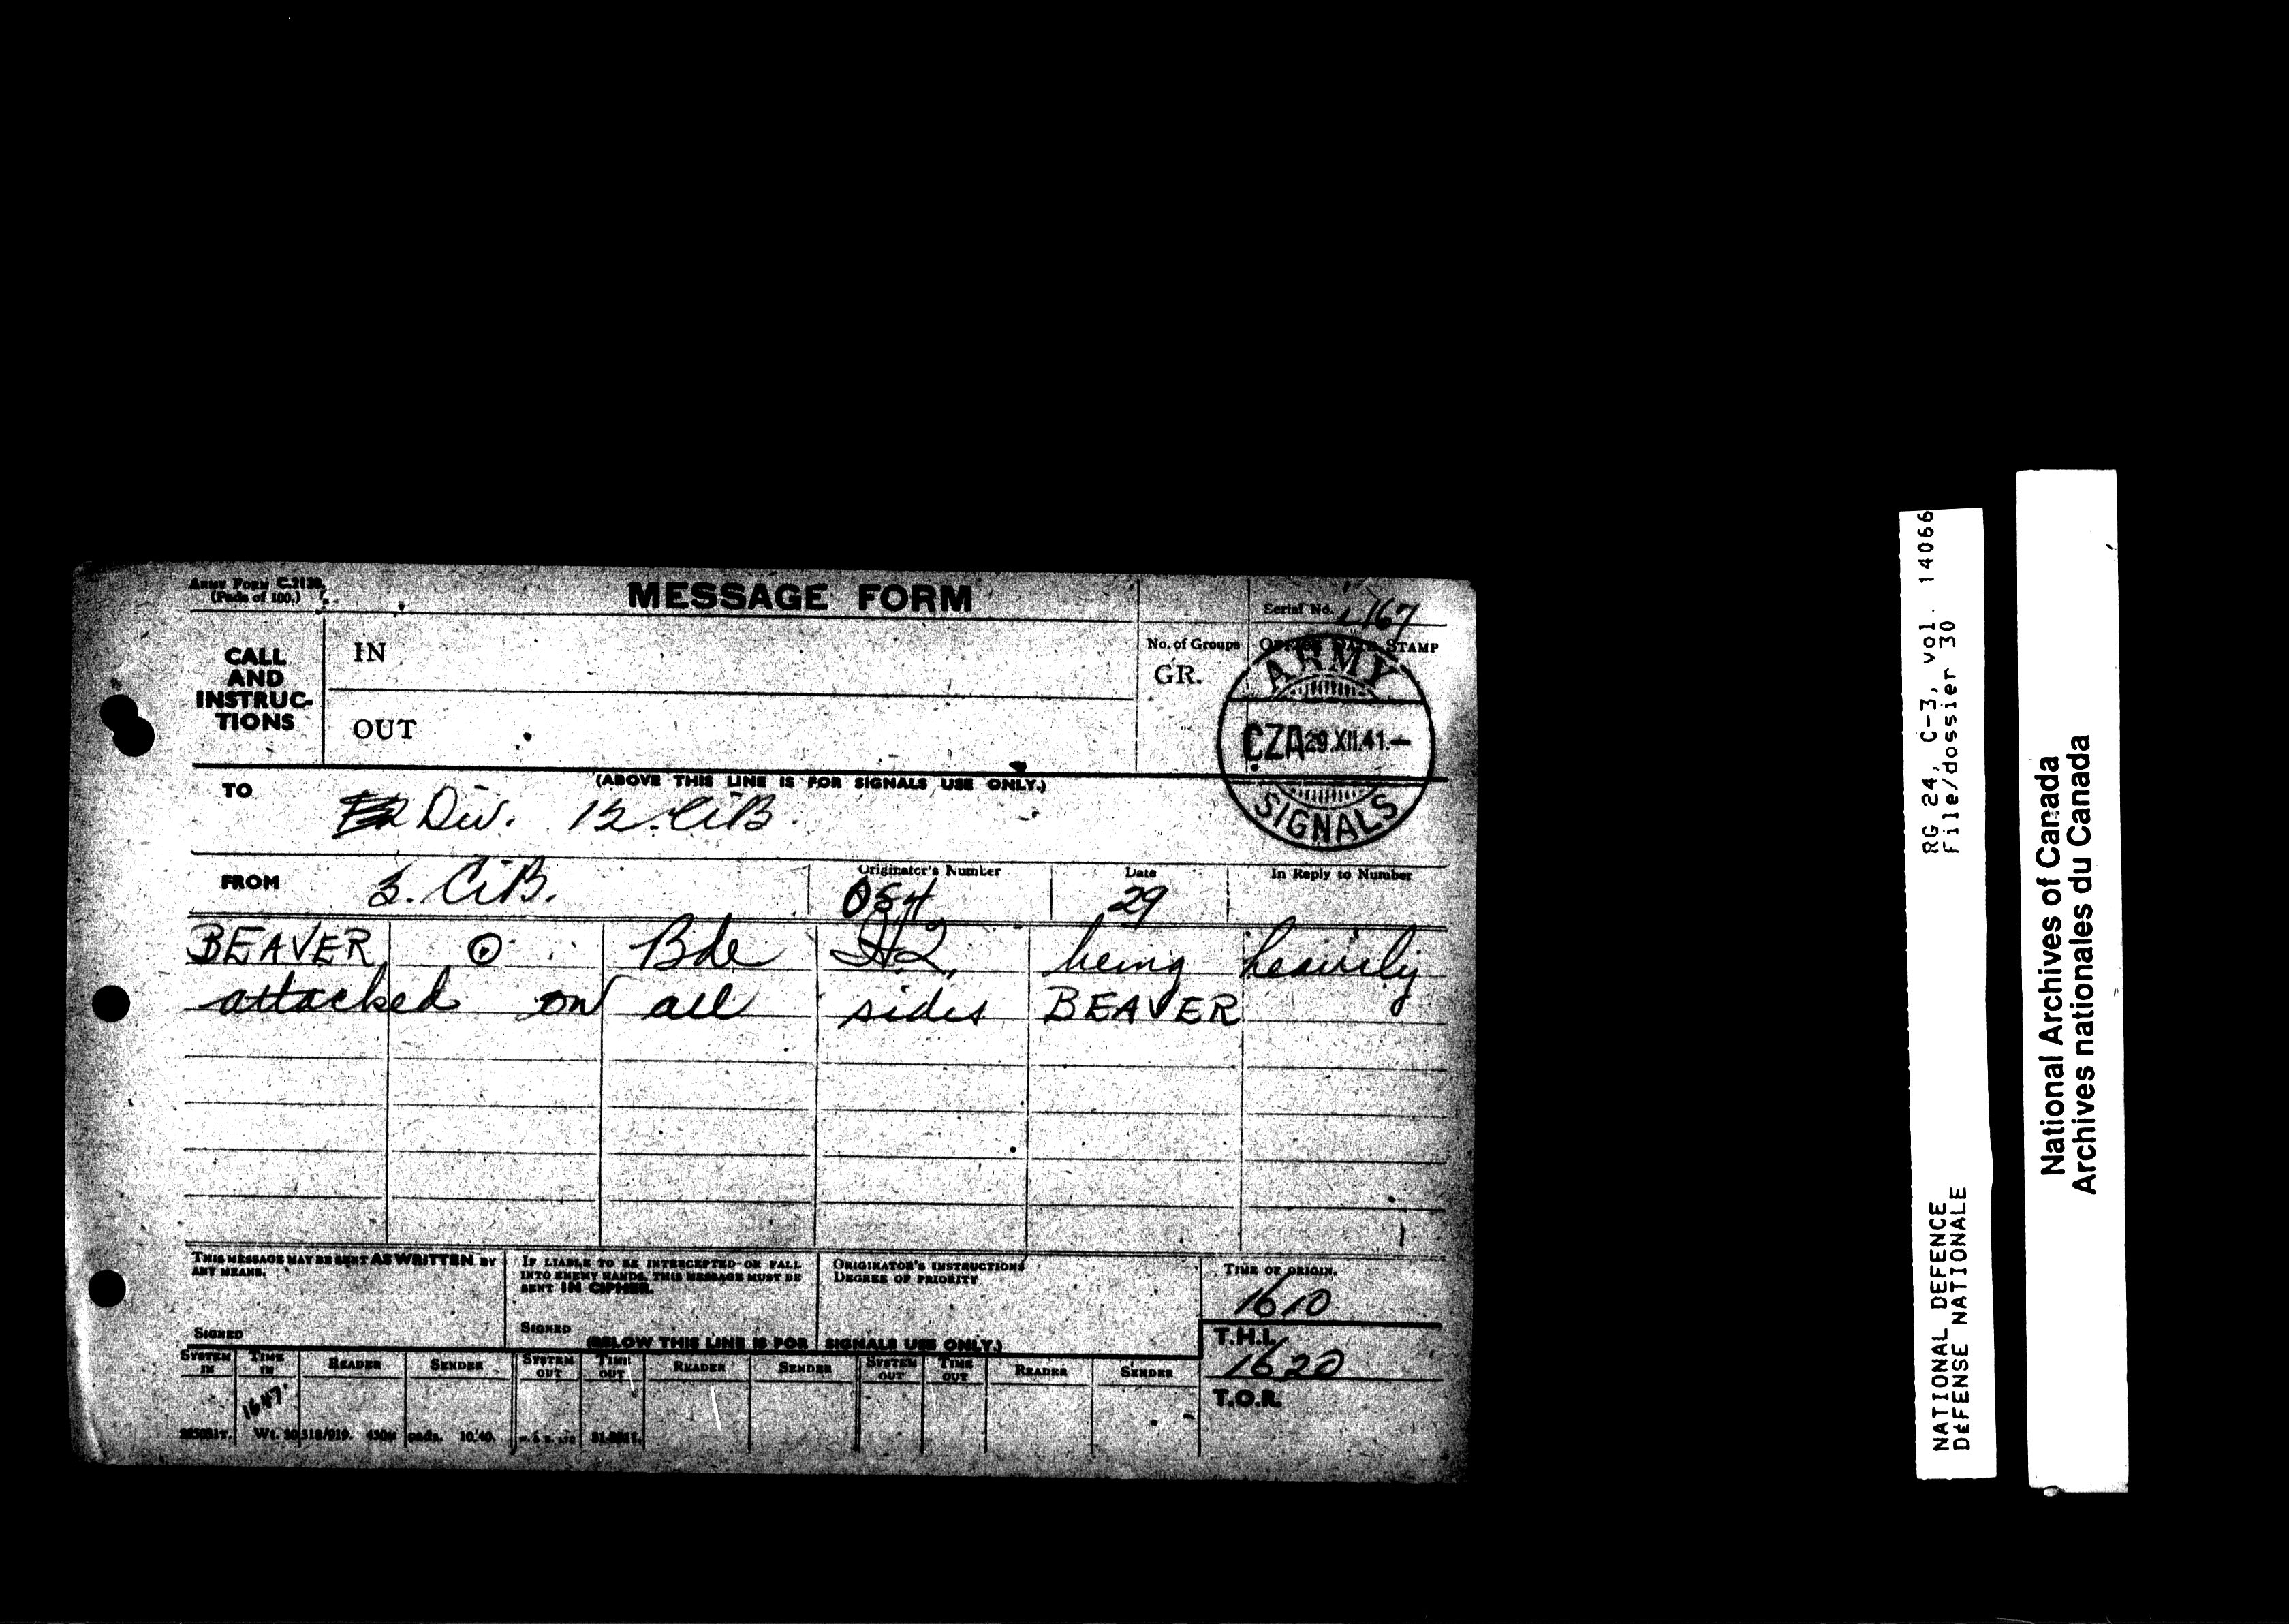 ARMY FORM C.2128.
(Pads of 100.)
MESSAGE FORM
Serial No. 167
CALL
AND
INSTRUC-
TIONS
IN
OUT
No. of Groups
GR.
OFFICE DATE STAMP
ARMY
CZA 29.XII.41.—
SIGNALS
(ABOVE THIS LINE IS FOR SIGNALS USE ONLY.)
TO
2 Div. 12. CIB.
FROM
3. CIB.
Originator's Number
084
Date
29
In Reply to Number
BEAVER ⊙ Bde H.Q. being heavily
attacked on all sides BEAVER
THIS MESSAGE MAY BE SENT AS WRITTEN BY
ANY MEANS.
SIGNED
IF LIABLE TO BE INTERCEPTED OR FALL
INTO ENEMY HANDS, THIS MESSAGE MUST BE
SENT IN CIPHER.
SIGNED
ORIGINATOR'S INSTRUCTIONS
DEGREE OF PRIORITY
TIME OF ORIGIN.
1610
(BELOW THIS LINE IS FOR SIGNALS USE ONLY.)
T.H.I.
1620
T.O.R.
SYSTEM IN TIME IN READER SENDER SYSTEM OUT TIME OUT READER SENDER SYSTEM OUT TIME OUT READER SENDER
1647
Wt. 30318/919. 450M pads. 10/40.
RG 24, C-3, vol. 14066
File/dossier 30
NATIONAL DEFENCE
DÉFENSE NATIONALE
National Archives of Canada
Archives nationales du Canada